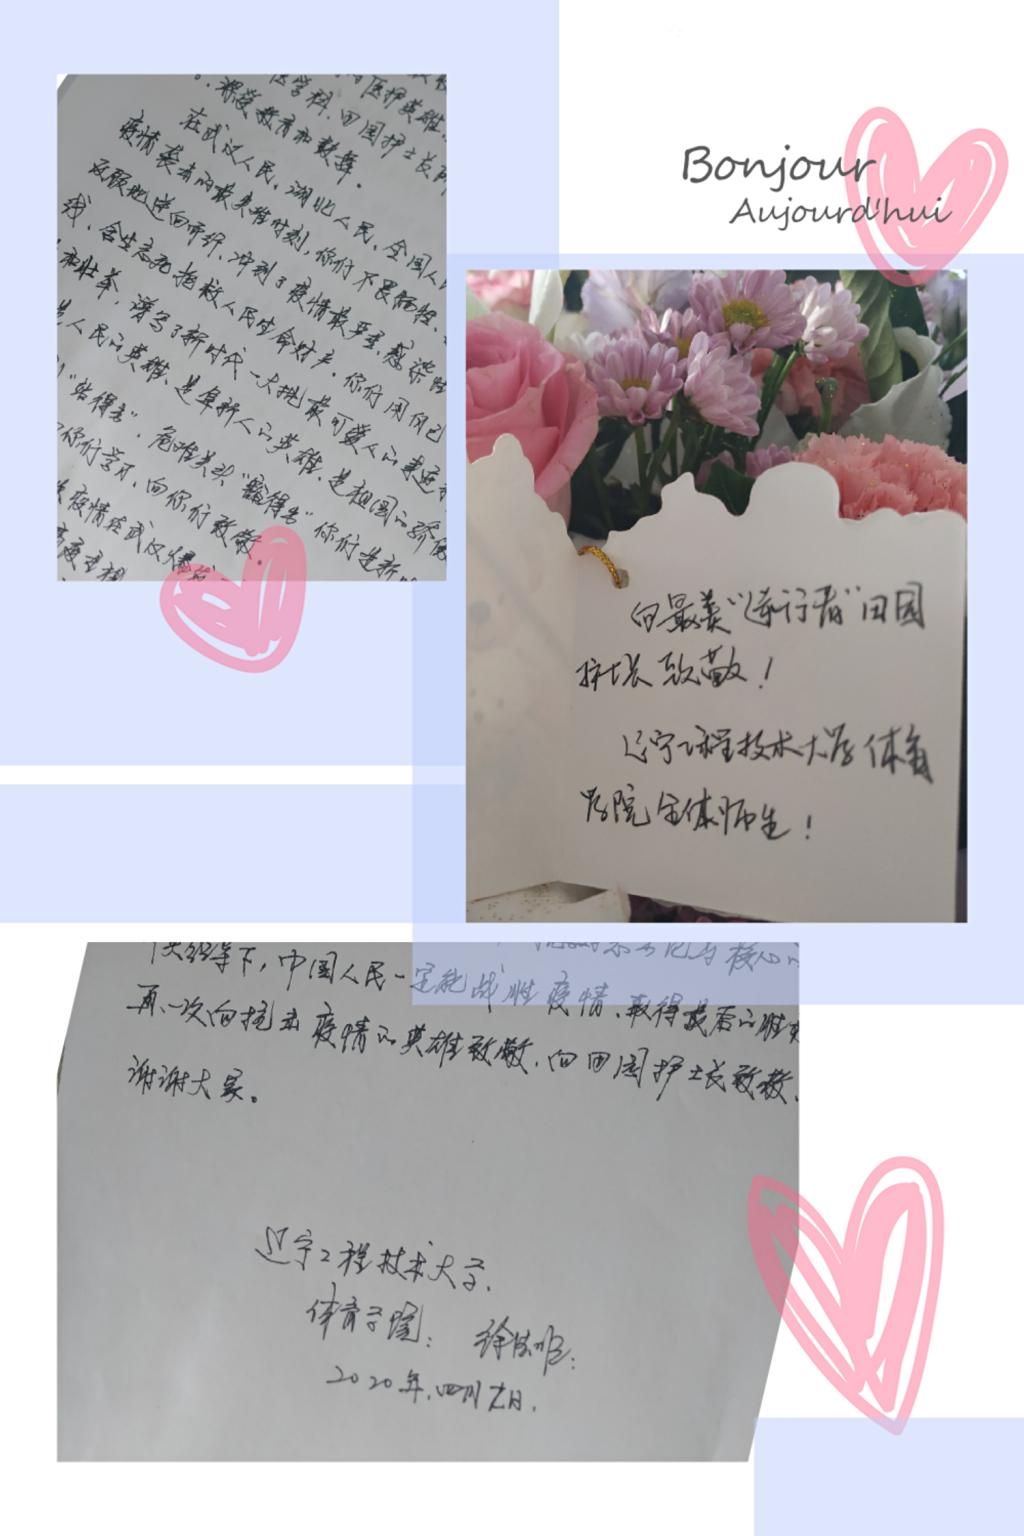 医学科,田园护士长
深受教育和鼓舞。
在武汉人民,湖北人民,全国人
疫情袭击的最关键时刻,你们不畏牺牲、
义无反顾地逆向而行,冲到了疫情最严重,感染
线,舍生忘死抢救人民生命财产。你们用自己
和壮举,谱写了新时代一大批最可爱人的
是人民的英雄,是阜新人的英雄,是祖国的骄傲
"站得出",危难关头"豁得出"你们是新时
你们学习,向你们致敬。
疫情在武汉爆发
Bonjour
Aujourd'hui
向最美“逆行者”田园
护士长致敬!
辽宁工程技术大学体育
学院全体师生!
领导下,中国人民一定能战胜疫情、取得最后的胜利
再一次向抗击疫情的英雄致敬、向田园护士长致敬、
谢谢大家。
辽宁工程技术大学、
体育学院:
2020年、四月